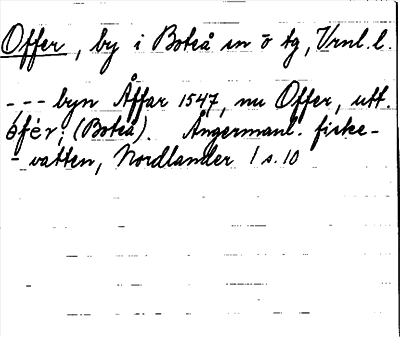 Offer, by i Boteå sn ö tg, Vrnl. l.
--- byn Åffar 1547, nu Offer, utt.
ófér; (Boteå). Ångermanl. fiske-
- vatten, Nordlander 1 s. 10